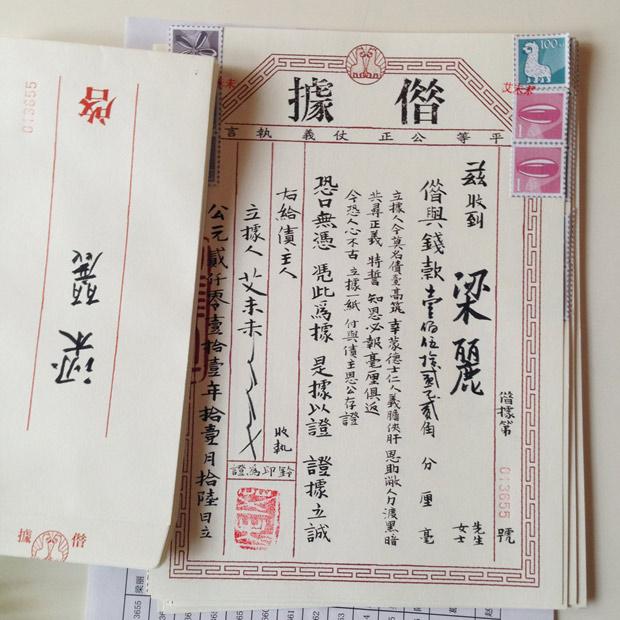 僣據
平等公正仗義執言
100
艾未未
1
1
僣據第 013655 號
兹收到 梁麗 先生 女士
僣與錢款壹佰伍拾貳元貳角 分 厘 毫
立據人今莫名債臺高筑 幸蒙德士仁人義膽俠肝 恩助敝人力渡黑暗
共尋正義 特誓 知恩必報毫厘俱返
今恐人心不古 立據一紙 付與債主恩公存證
恐口無憑 憑此爲據 是據以證 證據立誠
右給債主人 收執
立據人 艾未未
鈐印爲證
公元貳仟零壹拾壹年拾壹月拾陸日立
013655
啓
梁麗
僣據